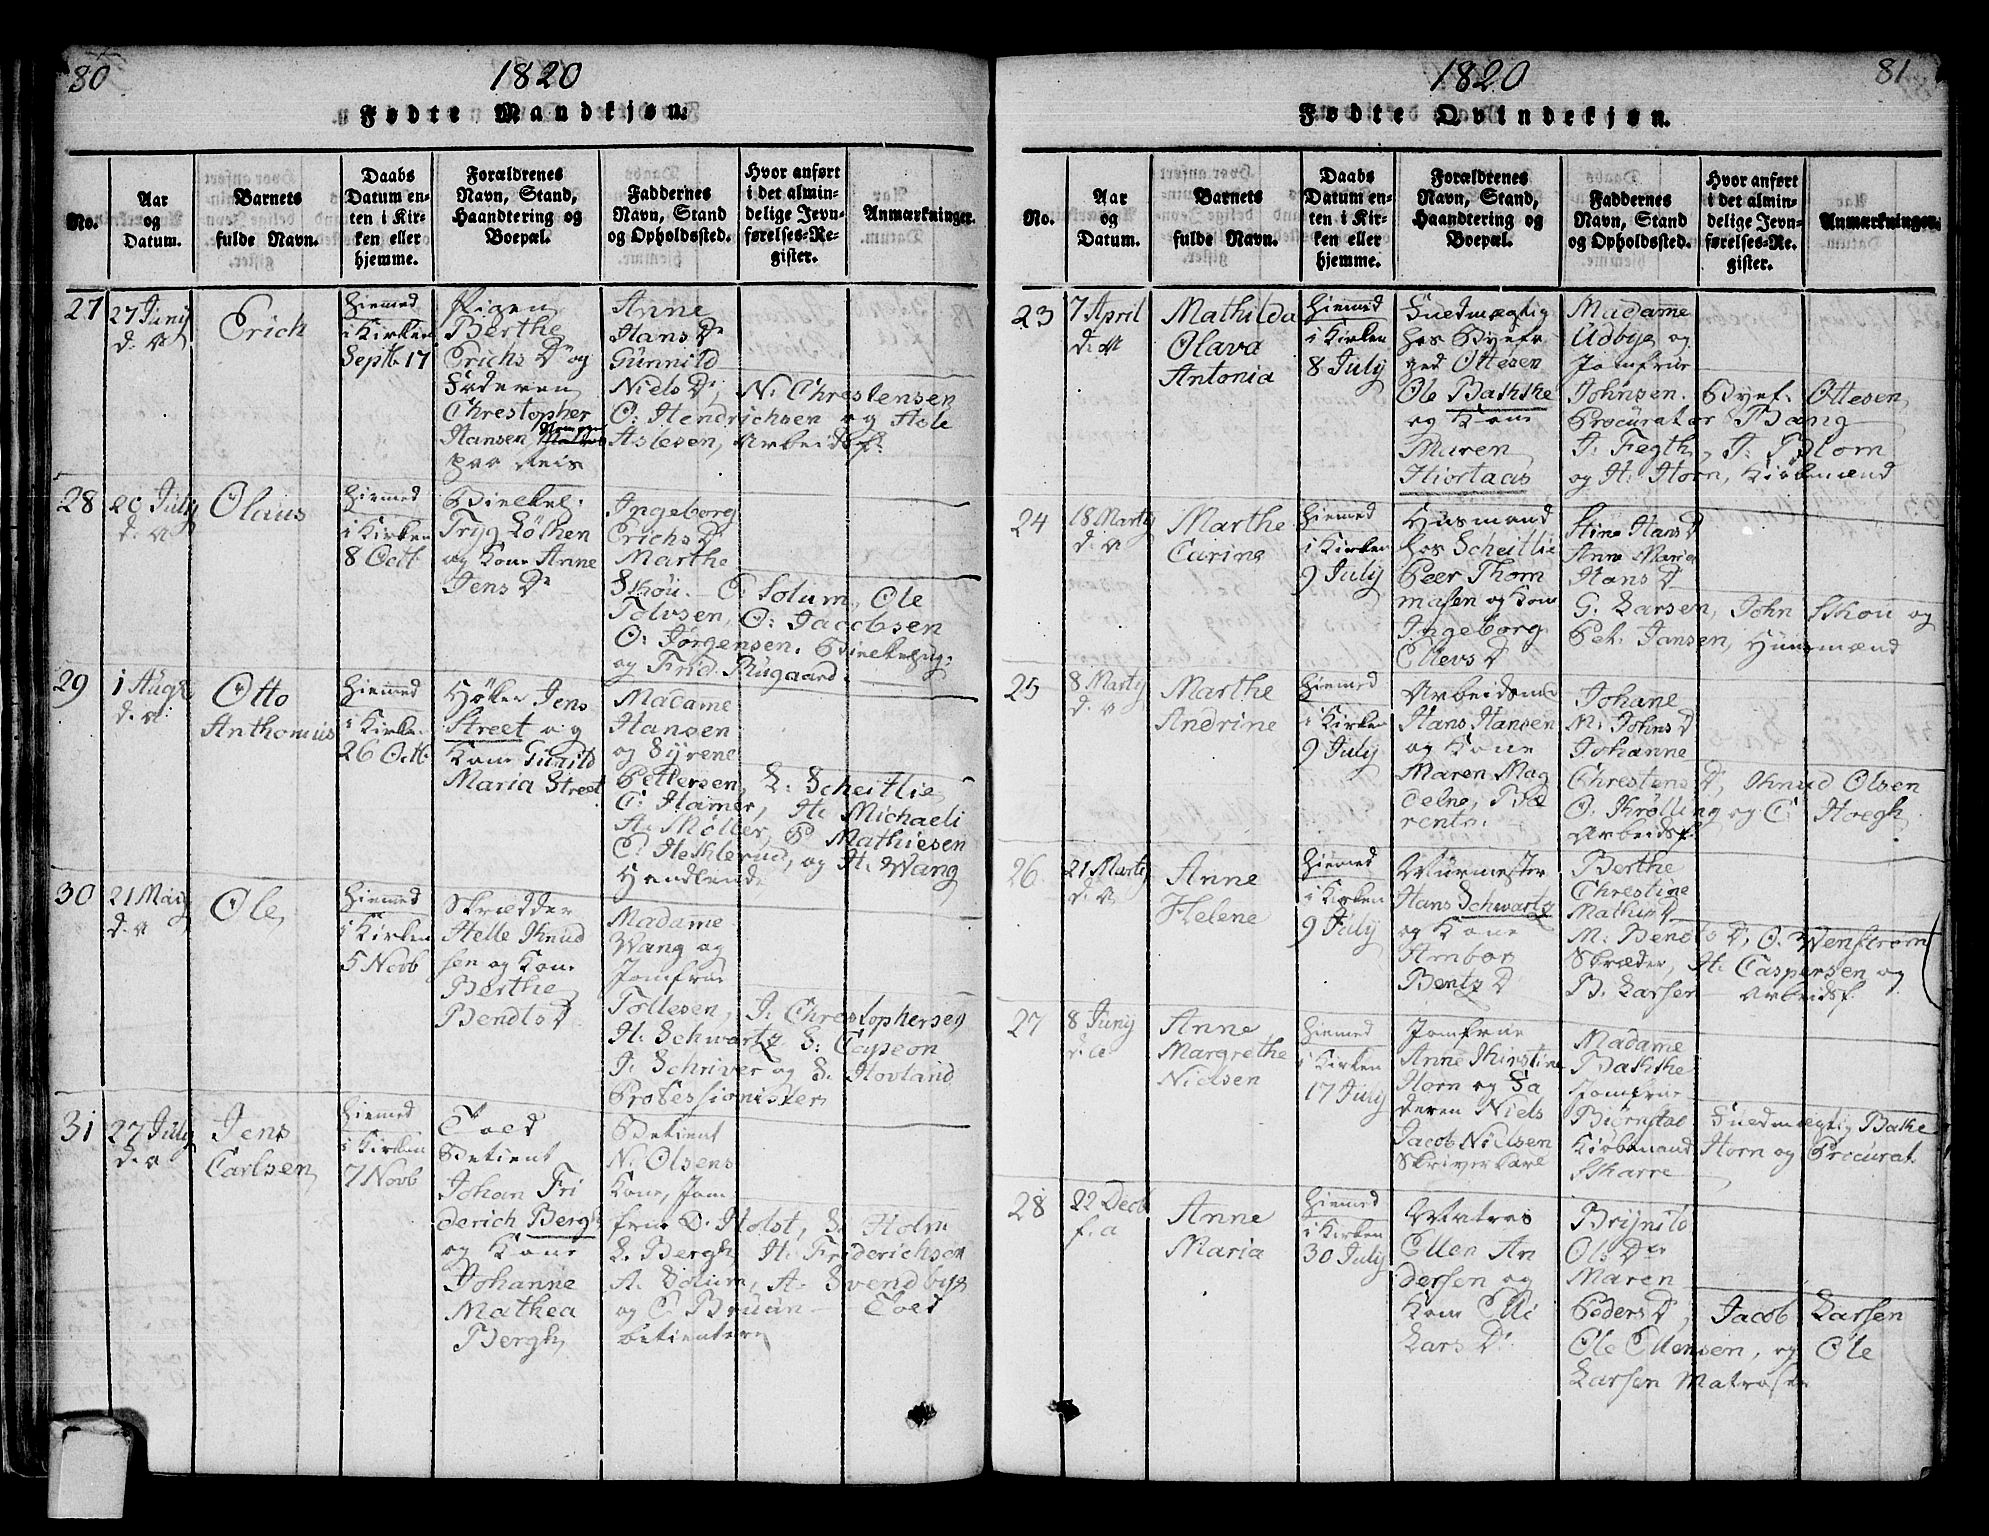 80
1820
Fødte Mandkjøn.
No.
Aar og Datum.
Barnets fulde Navn.
Daabs Datum enten i Kirken eller hjemme.
Forældrenes Navn, Stand, Haandtering og Boepæl.
Faddernes Navn, Stand og Opholdssted.
Hvor anført i det almindelige Jevnførelses-Register.
Anmærkninger.
27
27 Junij
d: A
Erich
Hiemed
i Kirken
Septb 17
Pigen
Berthe
Erichs Dr og
Faderen
Chrestopher
Hansen
paa Reis
Anne
Hans Dr
Gunnild
Niels Dr, N: Chrestensen
O: Hendrichsen og Hole
Aslesen, Arbeidsf:
28
20 July
d. A
Olaus
Hiemed
i Kirken
8 Octb
Bielkel:
Tryg Løthen
og Kone Anne
Jens Dr
Ingeborg
Erichs D
Marthe
Skou. O Solum, Ole
Tolvsen, O: Jacobsen
O: Jørgensen.
og Frid. Rugaard.
29
1 Aug
d. A
Otto
Anthonius
Hiemed
i Kirken
26 Octb
Høker Jens
Street og
Kone Gunild
Maria Street
Madame
Hansen
og Syrene
Pettersen, L: Scheitlie
C: Hamer, H: Michaeli
A: Møller, P Mathiesen
og H: Wang
Handlende
30
21 May
d. A
Ole
Hiemed
i Kirken
5 Novb
Skrædder
Helle Knud
sen og Kone
Berthe
Bendts D
Madame
Wang og
Jomfrue
Tollesen, J: Chrestophersen
H: Schwartz S: Capeon
J. Schriver og S: Hovland
Professionister
31
27 July
d. A
Jens
Carlsen
Hiemed
i Kirken
7 Novb
Told
Betient
Johan Fri
derich Bergh
og Kone
Johanne
Mathea
Bergh
Betient
N. Olsens
Kone, Jom
frue D: Holst, S. Holm
L. Bergh, H: Friderichsen
A. Solum, A: Svendbye
og C Bruun Told
betientere
1820
81
Fødte Qvindekjøn.
No.
Aar og Datum.
Barnets fulde Navn.
Daabs Datum enten i Kirken eller hjemme.
Forældrenes Navn, Stand, Haandtering og Boepæl.
Faddernes Navn, Stand og Opholdssted.
Hvor anført i det almindelige Jevnførelses-Register.
Anmærkninger.
23
7 April
d. A
Mathilda
Olava
Antonia
Hiemed
i Kirken
8 July
Fuldmægtig
hos Byefo
ged Ottesen
Ole Bathke
og Kone
Maren
Hiortaas
Madame
Udbye og
Jomfrue
Johnsen. Byef. Ottesen
Procurator Bang
A. Fegth, A. Blom
og H: Horn, Kiøbmænd
24
18 Marty
d. A
Marthe
Carine
Hiemed
i Kirken
9 July
Husmand
hos Scheitlie
Peer Thom
masen og Kone
Ingeborg
Ellevs D
Stine Hans D
Anne Maria
Hans D
G. Larsen, John Skou og
Pet. Jansen, Huusmænd
25
8 Marty
d. A
Marthe
Andrine
Hiemed
i Kirken
9 July
Arbeidsmd
Hans Hansen
og Kone
Maren Mag
delne
Johane
M: Johns D
Johanne
Chrestens D, Knud Olsen
O. Krølling og C: Hoegh
Arbeidsf.
26
21 Marty
d. A
Anne
Helene
Hiemed
i Kirken
9 July
Murmester
Hans Schwartz
og Kone
Annbor
Bentz D
Berthe
Chrestine
Mathis D
M: Bendts D, O. Wenstrøm
Skræder, H. Caspersen og
B. Larsen Arbeidsf.
27
8 Juny
d. a
Anne
Margrethe
Nielsen
Hiemed
i Kirken
17 July
Jomfrue
Anne Kirstine
Horn og Fa
deren Niels
Jacob Nielsen
Skriverkarl
Madame
Bathke
Jomfrue
Biørnstad Fuldmægtig Batke
Kiøbmand Horn og Procurat.
Skarre
28
22 Decb
f. a
Anne
Maria
Hiemed
i Kirken
30 July
Matros
Ellen An
dersen og
Kone Elli
Lars Dr
Brynild
Ols Dr
Maren
Peders D, Jacob Larsen
Ole Ellensen, og Ole
Larsen Matroser